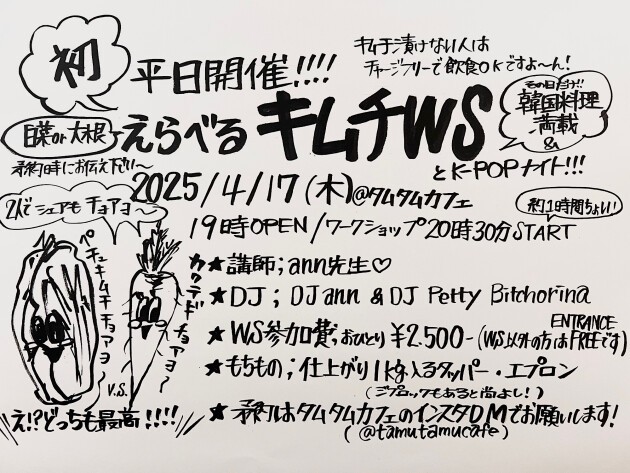 初
平日開催!!!!
キムチ漬けない人は
チャージフリーで飲食OKですよ〜ん!
白菜or大根
予約時にお伝え下さい〜
えらべるキムチWS
その日だけ!!
韓国料理
満載
&
とK-POPナイト!!!
2025/4/17(木)@タムタムカフェ
19時OPEN/ワークショップ20時30分START
約1時間ちょい!
2人でシェアもチョアヨ〜
ペチュキムチチョアヨ〜
V.S.
カクテギチョアヨ〜
え!?どっちも最高!!!!
★講師;ann先生♡
★DJ;DJ ann & DJ Petty Bitchorina
★WS参加費,おひとり¥2.500-(WS以外の方はENTRANCE FREEです)
★もちもの;仕上がり1kg入るタッパー・エプロン
(ジプロックもあると尚よし!)
★予約はタムタムカフェのインスタDMでお願いします!
(@tamutamucafe)